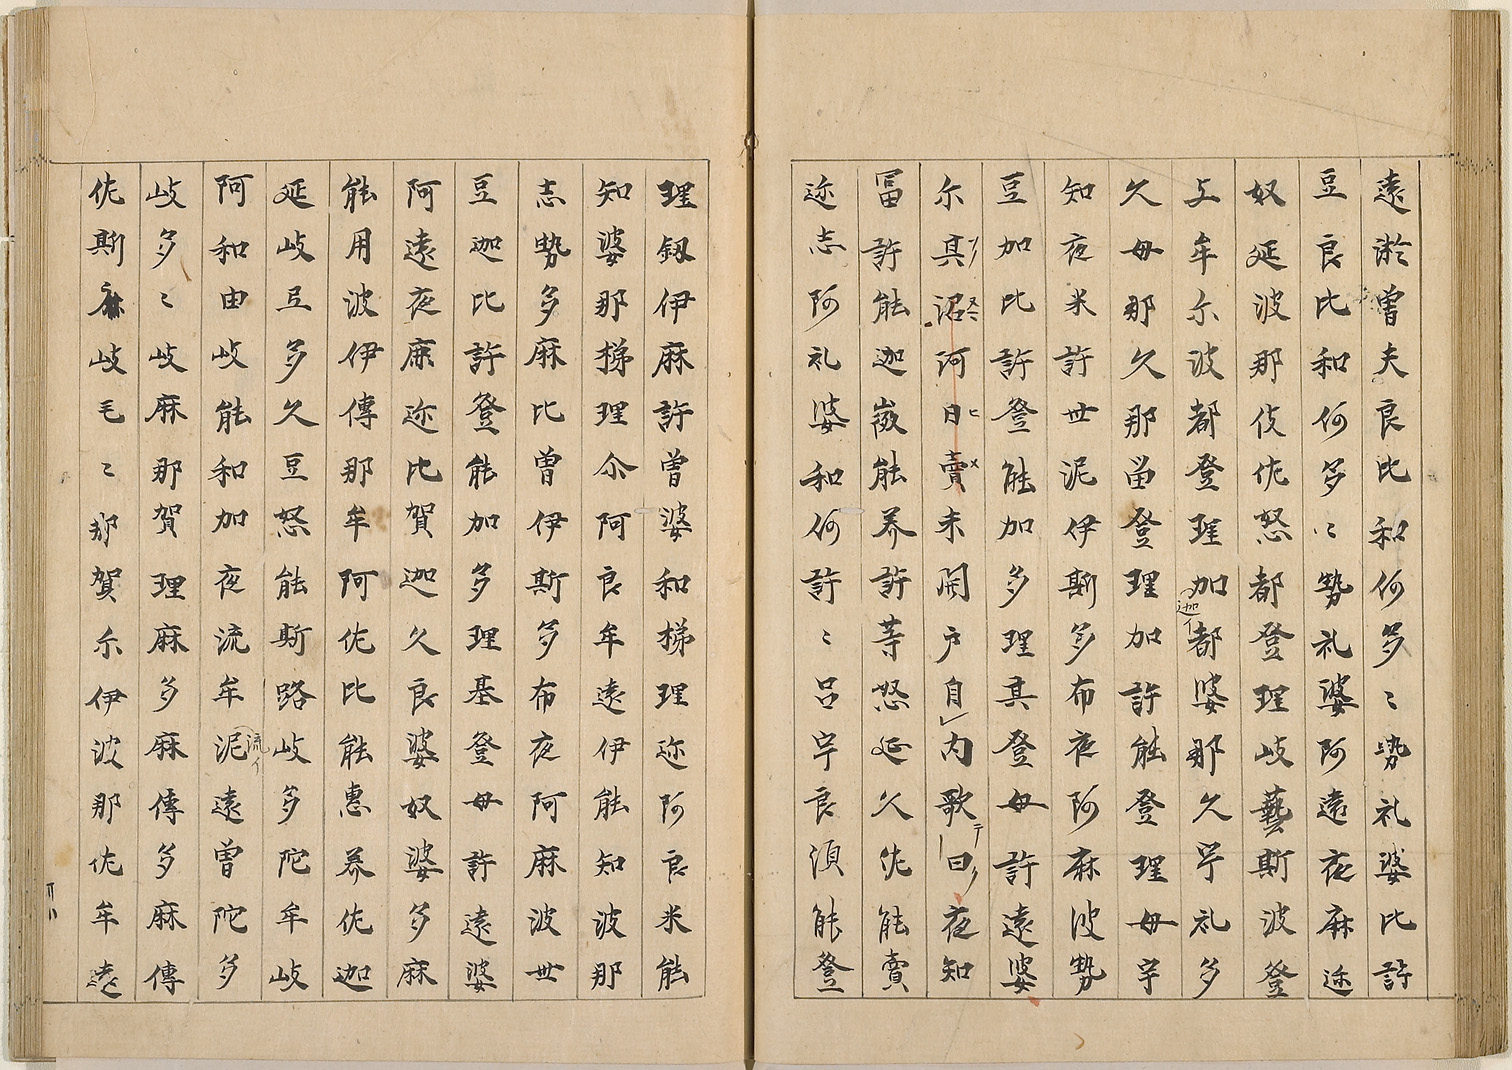 遠淤曽夫良比和何多〻勢礼婆比許
豆良比和何多〻勢礼婆阿遠夜麻迩
奴延波那伎佐怒都登理岐藝斯波登
与牟尓波都登理加都婆那久宇礼多
久母那久那留登理加許能登理母宇
知夜米許世泥伊斯多布夜阿麻波勢
豆加比許登能加多理其登母許遠婆
尓其沼河日賣未開戸自内歌曰夜知
冨許能迦微能美許等怒延久佐能賣
迩志阿礼婆和何許〻呂宇良須能登
理叙伊麻許曽婆和梯理迩阿良米能
知婆那梯理尓阿良牟遠伊能知波那
志勢多麻比曽伊斯多布夜阿麻波世
豆迦比許登能加多理基登母許遠婆
阿遠夜麻迩比賀迦久良婆奴婆多麻
能用波伊傳那牟阿佐比能恵美佐迦
延岐豆多久豆怒能斯路岐多陀牟岐
阿和由岐能和加夜流牟泥遠曽陀多
岐多〻岐麻那賀理麻多麻傳多麻傳
佐斯麻岐毛〻那賀尓伊波那佐牟遠